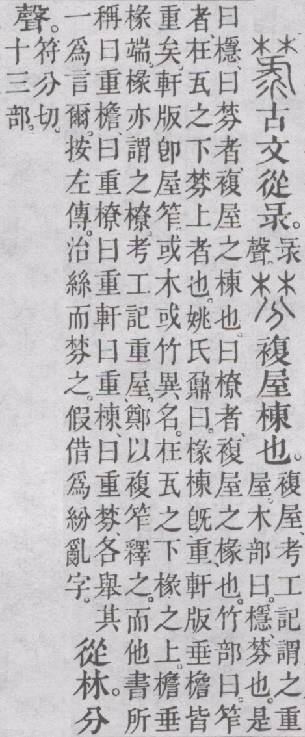 古文從彔。彔聲。棼複屋棟也。複屋、考工記謂之重
屋。木部曰。檼、棼也。是
曰檼、曰棼者、複屋之棟也。曰橑者、複屋之椽也。竹部曰。笮
者、在瓦之下棼上者也。姚氏鼐曰。椽棟旣重、軒版垂檐皆
重矣。軒版卽屋笮。或木或竹異名。在瓦之下椽之上。檐垂
椽端。椽亦謂之橑。考工記重屋。鄭以複笮釋之。而他書所
稱曰重檐、曰重橑、曰重軒、曰重棟、曰重棼、各舉其
一爲言爾。按左傳。治絲而棼之。假借爲紛亂字。從林。分
聲。符分切。
十三部。